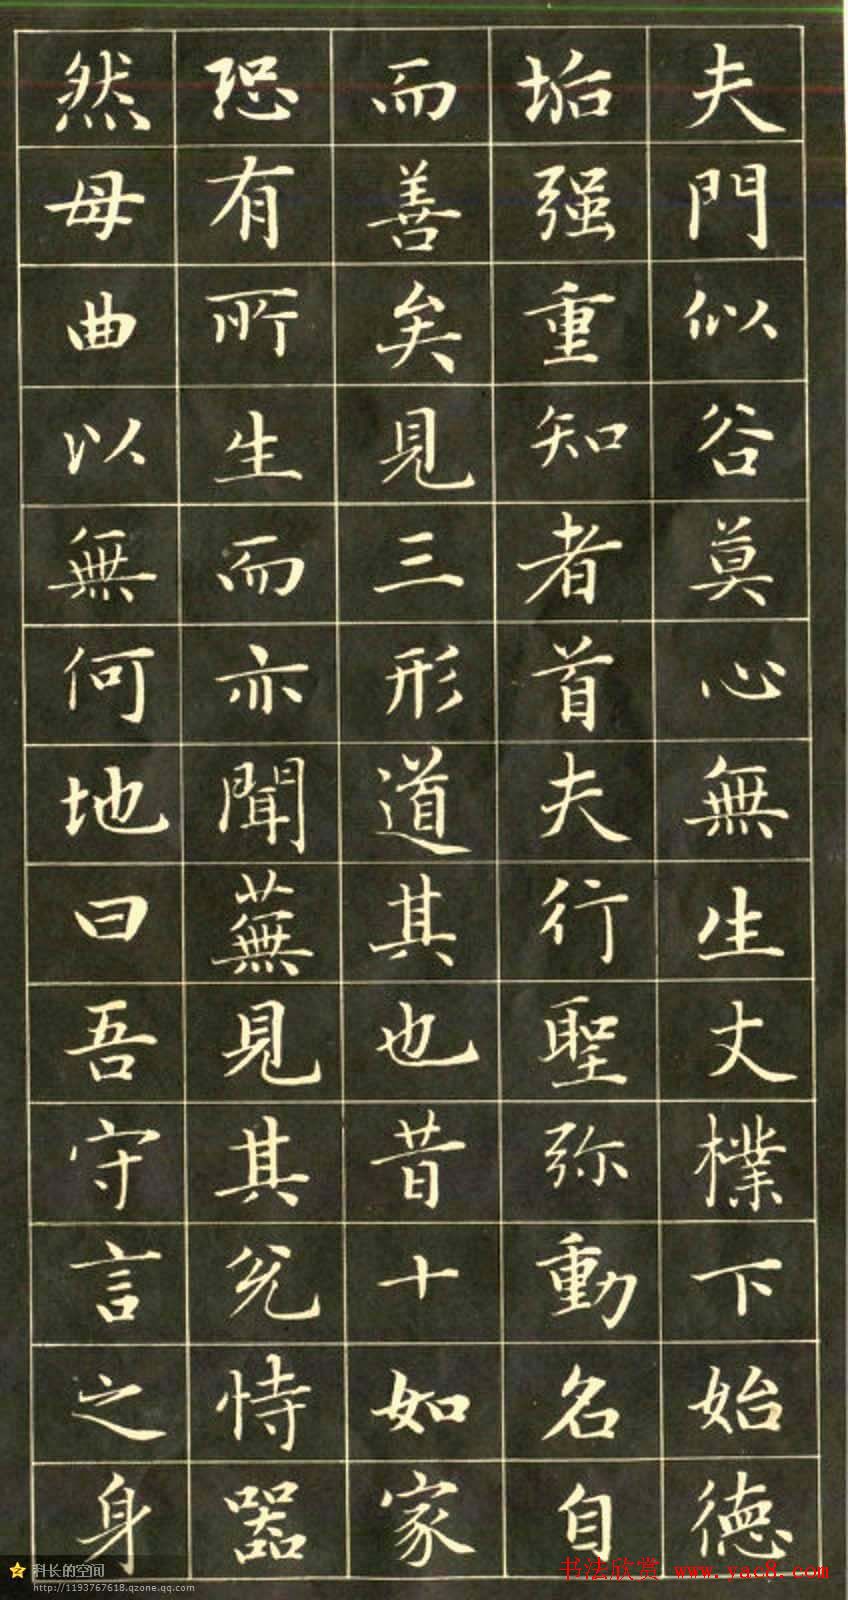 夫門似谷莫心無生丈樸下始德
垢强重知者首夫行聖弥動名自
而善矣見三形道其也昔十如家
恐有所生而亦聞蕪見其兊恃器
然母曲以無何地曰吾守言之身
科长的空间
http://1193767618.qzone.qq.com
书法欣赏 www.yac8.com